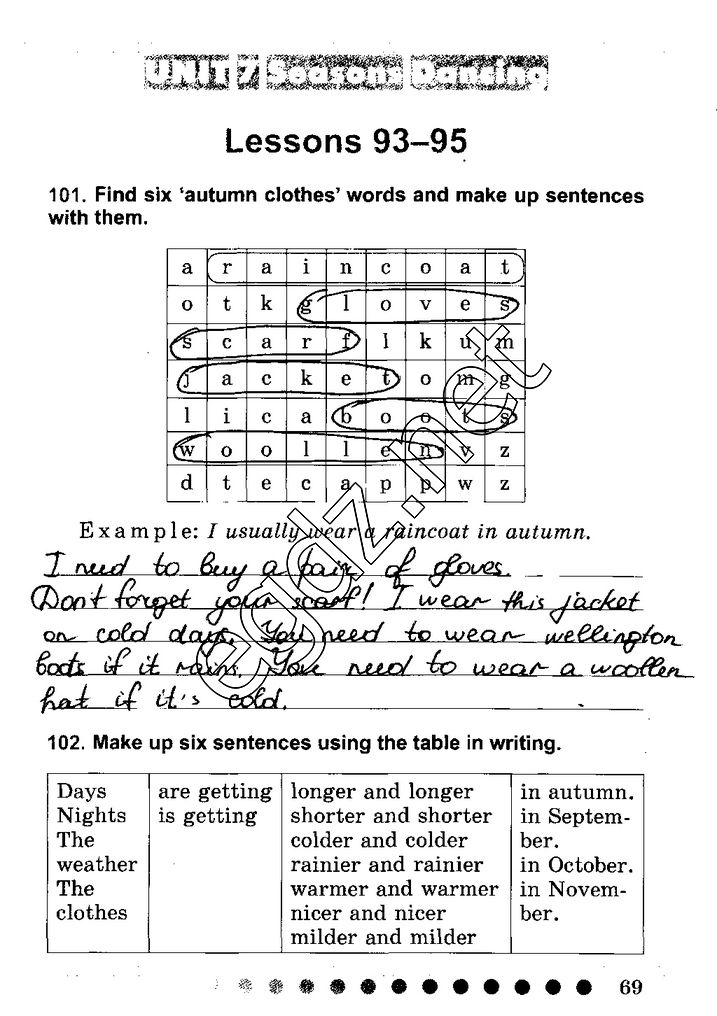 UNIT 7 Seasons Dancing
Lessons 93–95
101. Find six ‘autumn clothes’ words and make up sentences
with them.
a r a i n c o a t
o t k g l o v e s
s c a r f l k u m
j a c k e t o m g
l i c a b o o t s
w o o l l e n v z
d t e c a p p w z
Example: I usually wear a raincoat in autumn.
I need to buy a pair of gloves.
Don't forget your scarf! I wear this jacket
on cold days. You need to wear wellington
boots if it rains. You need to wear a woollen
hat if it's cold.
102. Make up six sentences using the table in writing.
Days are getting longer and longer in autumn.
Nights is getting shorter and shorter in Septem-
The colder and colder ber.
weather rainier and rainier in October.
The warmer and warmer in Novem-
clothes nicer and nicer ber.
milder and milder
69
egdz.net